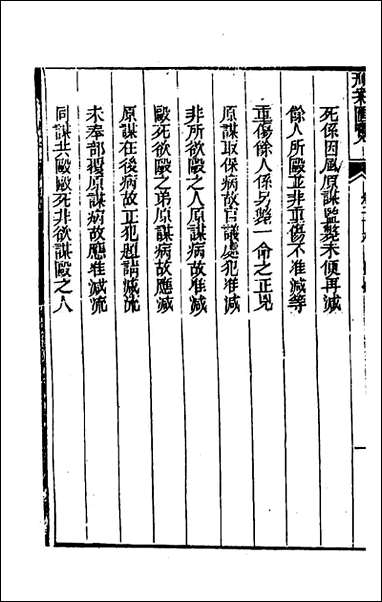 死係因風原謀監斃未便再減
餘人所毆並非重傷不准減等
重傷餘人係另斃一命之正兇
原謀取保病故官議處犯准減
非所欲毆之人原謀病故准減
毆死欲毆之弟原謀病故應減
原謀在後病故正犯題請減流
未奉部覆原謀病故應准減流
同謀共毆毆死非欲謀毆之人